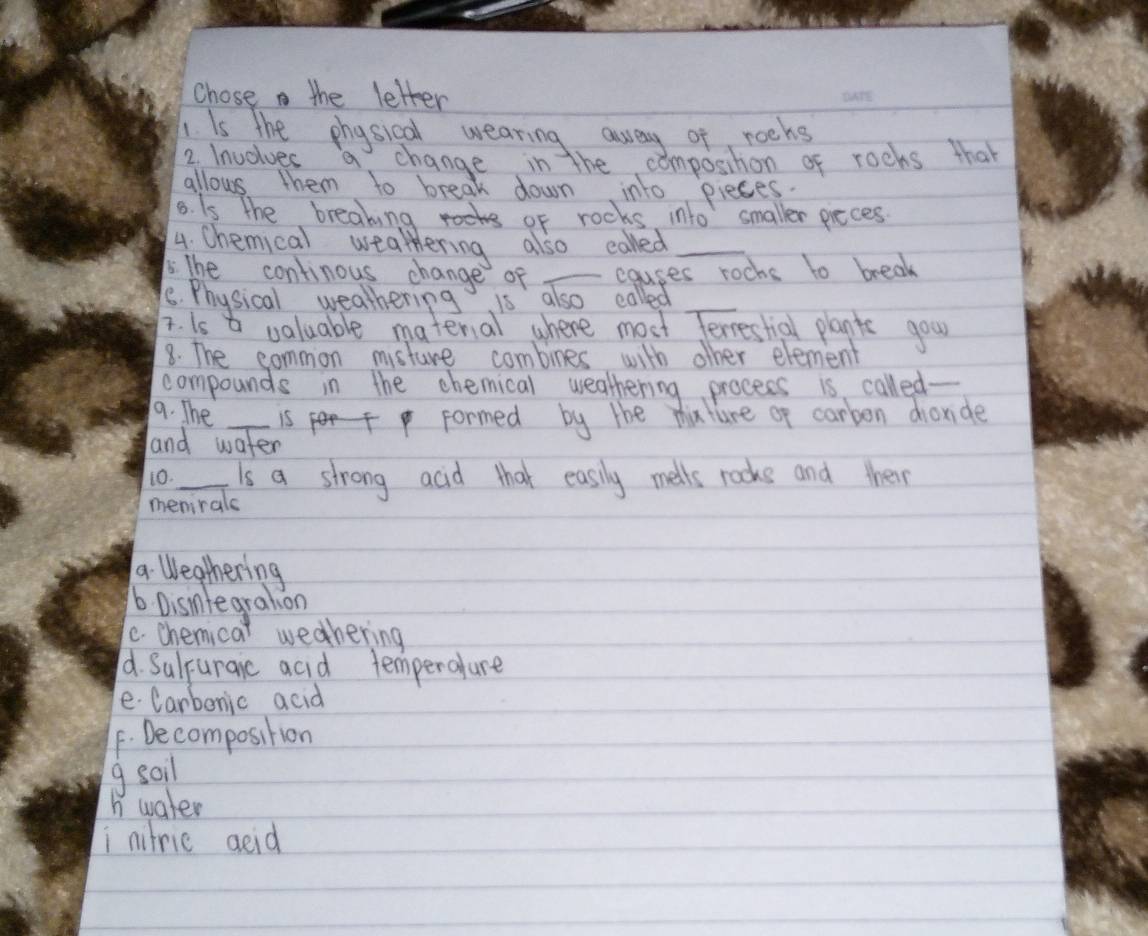 Chose the letter
DATE
1. Is the physical wearing away of rocks
2. Involves a change in the composition of rocks that
allows them to break down into pieces.
3. Is the breaking rocks of rocks into smaller pieces.
4. Chemical weathering also called ___
5. The continous change of ___ causes rocks to break
6. Physical weathering is also called ___
7. Is a valuable material where most Terrestial plants gow
8. The common misture combines with other element
compounds in the chemical weathering process is called —
9. The ___ is for formed by the mixture of carbon dioxide
and water
10. ___ Is a strong acid that easily melts rocks and their
menirals
a. Weathering
b Disintegration
c. Chemical weathering
d. Sulfuraic acid temperature
e. Carbonic acid
f. Decomposition
g soil
h water
i nitric acid